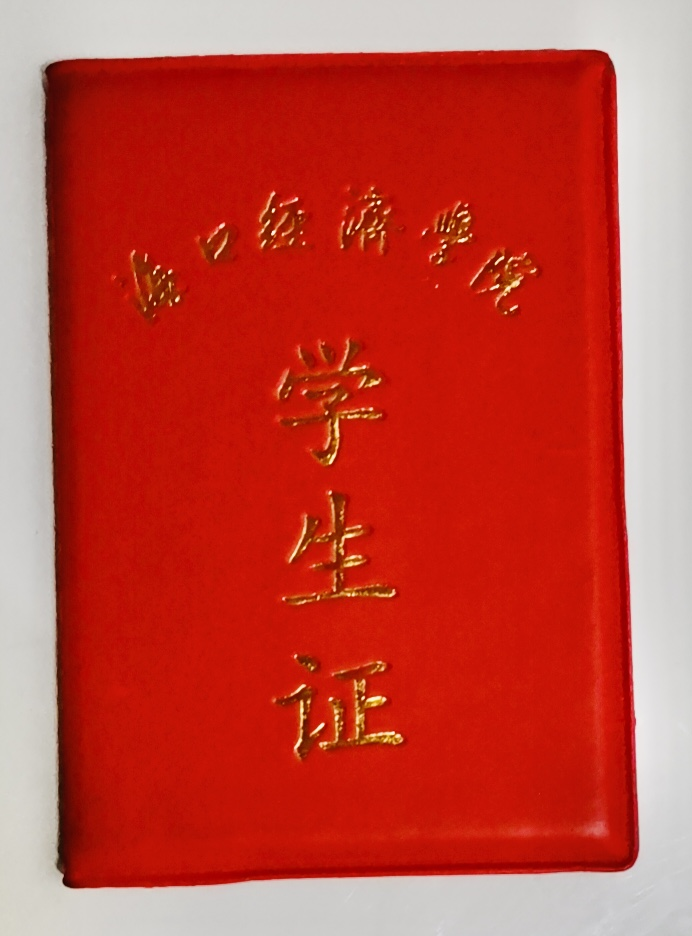 海口经濟學院
学生证